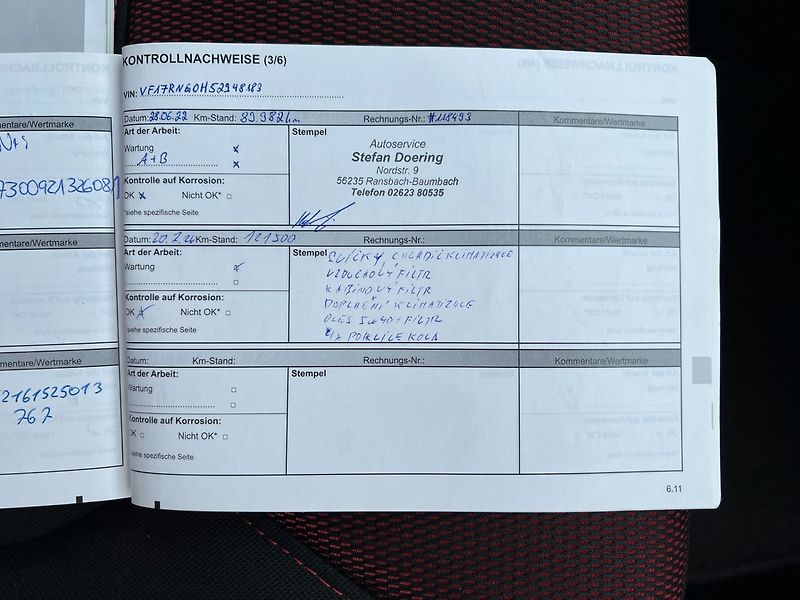 KONTROLLNACHWEISE (3/6)
VIN: VF17RNG0H52948183
mentare/Wertmarke
Datum: 28.06.22 Km-Stand: 89.982km Rechnungs-Nr.: #118493 Kommentare/Wertmarke
Art der Arbeit:
Wartung x
A+B x
Kontrolle auf Korrosion:
OK x Nicht OK* □
*siehe spezifische Seite
Stempel
Autoservice
Stefan Doering
Nordstr. 9
56235 Ransbach-Baumbach
Telefon 02623 80535
mentare/Wertmarke
Datum: 20.7.26 Km-Stand: 121500 Rechnungs-Nr.: Kommentare/Wertmarke
Art der Arbeit:
Wartung x
□
Kontrolle auf Korrosion:
OK x Nicht OK* □
*siehe spezifische Seite
Stempel
CHLADIČ KLIMATIZACE
VZDUCHOVÝ FILTR
KABINOVÝ FILTR
DOPLNĚNÍ KLIMATIZACE
OLEJ 5W40 + FILTR
4x POKLICE KOLA
mentare/Wertmarke
2161525013
767
Datum: Km-Stand: Rechnungs-Nr.: Kommentare/Wertmarke
Art der Arbeit:
Wartung □
□
Kontrolle auf Korrosion:
OK □ Nicht OK* □
*siehe spezifische Seite
Stempel
6.11